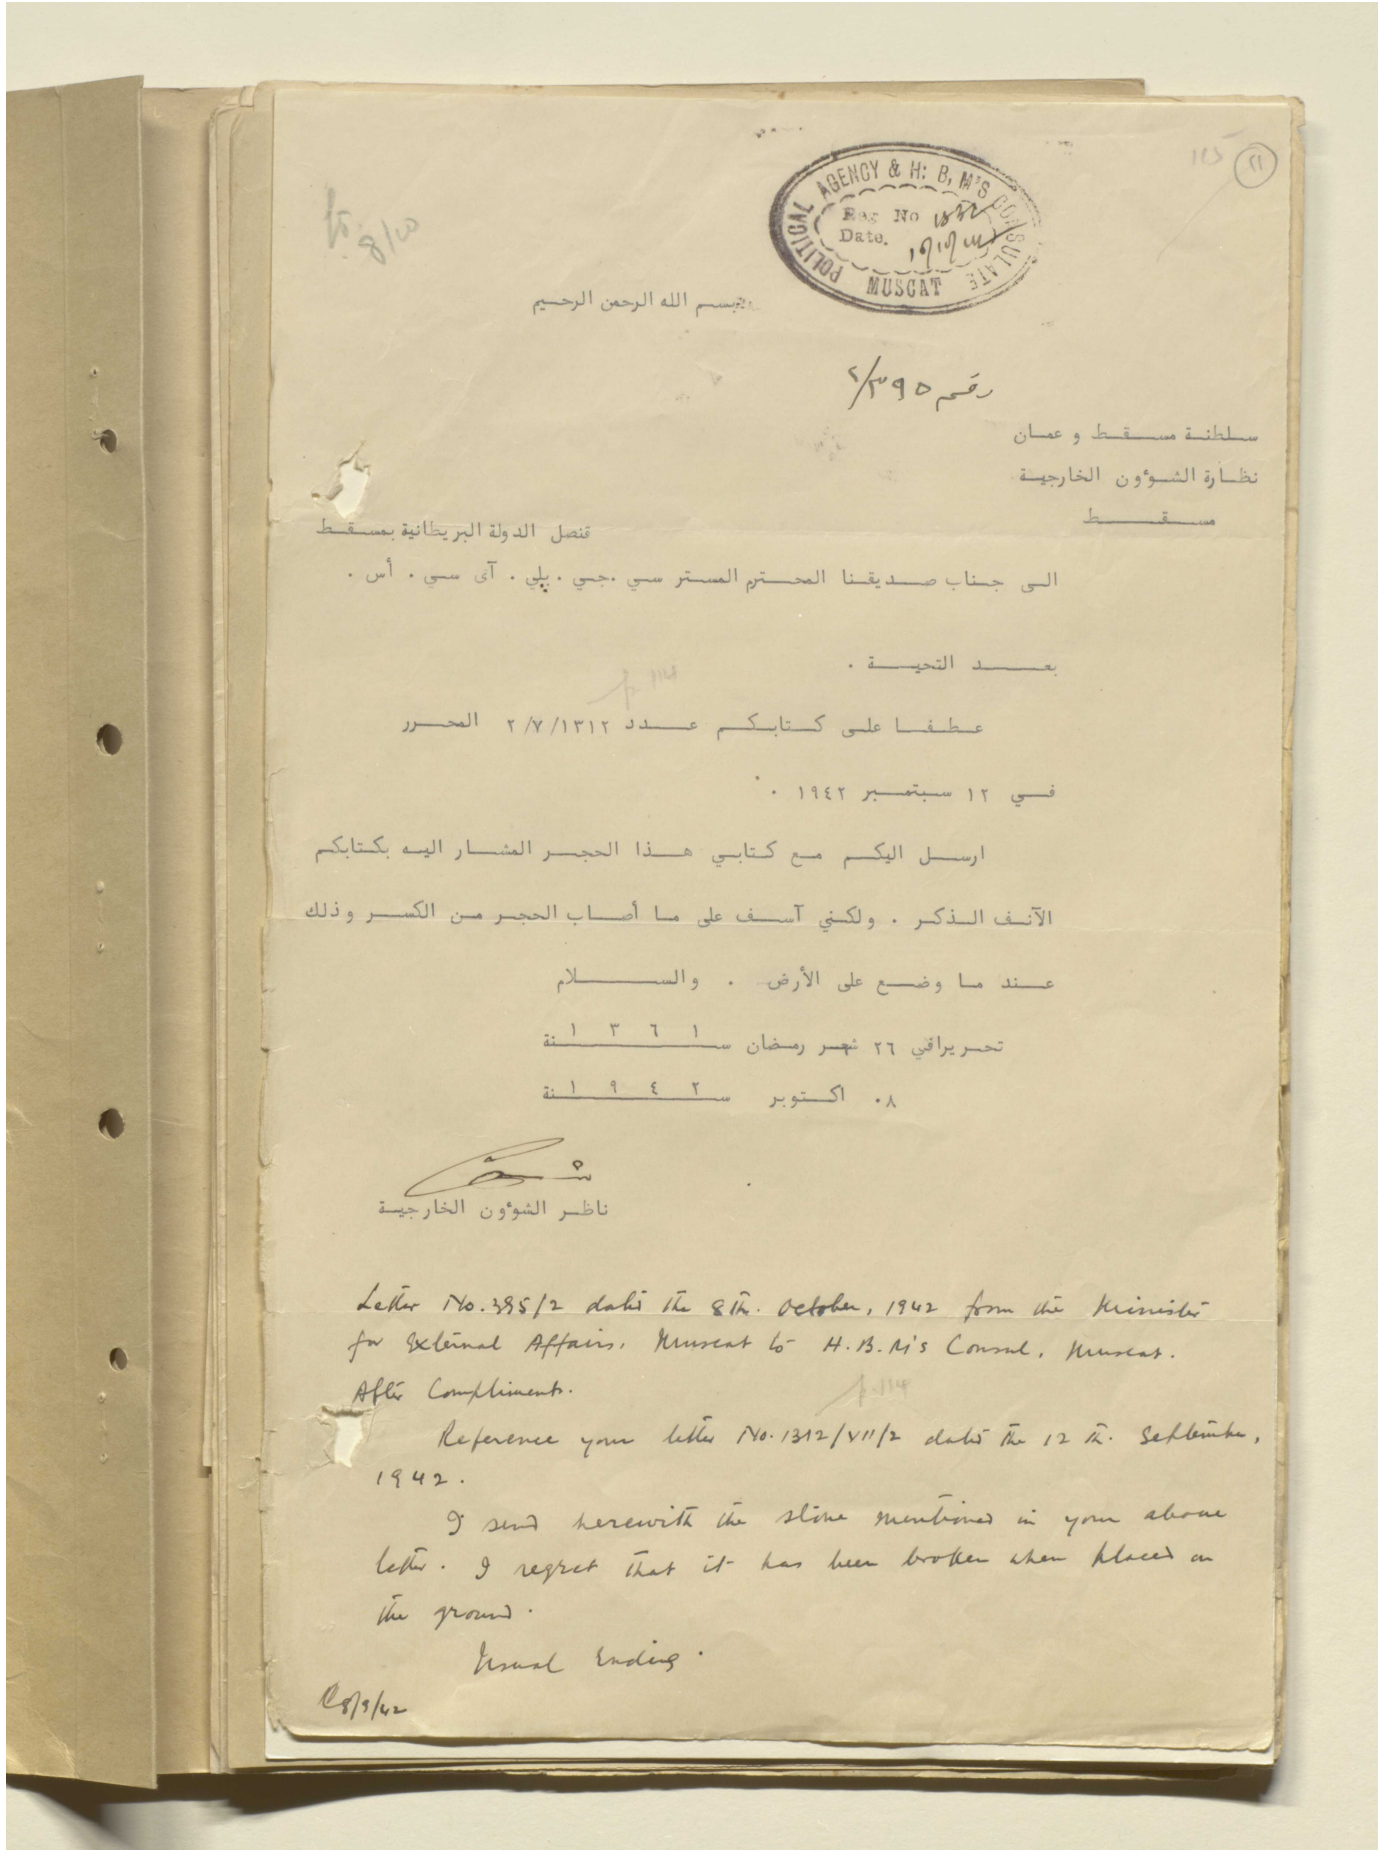 115
POLITICAL AGENCY & H: B, M'S CONSULATE
Reg No
Date.
MUSCAT
8/10
بسم الله الرحمن الرحيم
رقم ٢/٣٩٥
سلطنة مسقط و عمان
نظارة الشوؤون الخارجية
مسقط
قنصل الدولة البريطانية بمسقط
الى جناب صديقنا المحترم المستر سي .جي . بلي . آى سي . أس .
بعد التحية .
p 114
عطفا على كتابكم عدد ٢/٧/١٣١٢ المحرر
في ١٢ سبتمبر ١٩٤٢ .
ارسل اليكم مع كتابي هذا الحجر المشار اليه بكتابكم
الآنف الذكر . ولكني آسف على ما أصاب الحجر من الكسر وذلك
عند ما وضع على الأرض . والسلام
تحريرافي ٢٦ شهر رمضان سنة ١٣٦١
٠٨ اكتوبر سنة ١٩٤٢
ناظر الشوؤون الخارجية
Letter No. 395/2 dated the 8th. October, 1942 from the Minister
for External Affairs, Muscat to H.B.M's Consul, Muscat.
After Compliments.
p. 114
Reference your letter No. 1312/VII/2 dated the 12th. September,
1942.
I send herewith the stone mentioned in your above
letter. I regret that it has been broken when placed on
the ground.
Usual Ending.
8/9/42